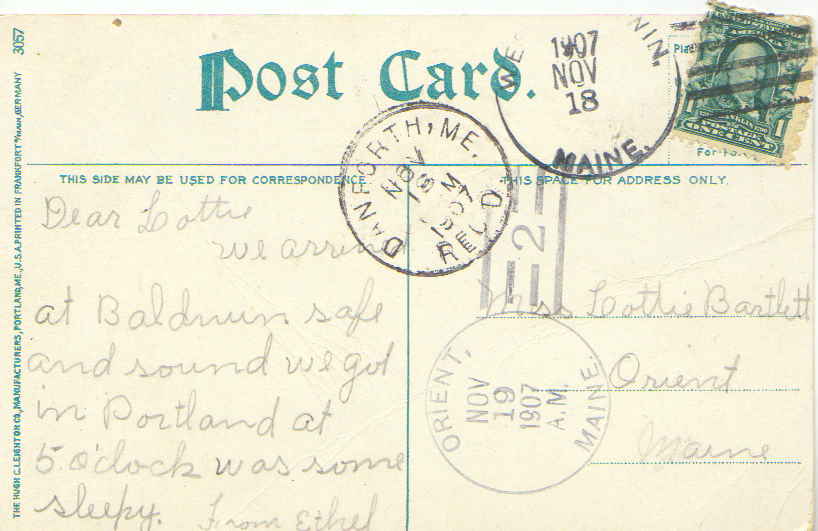 3057
Post Card.
WE NIN.
1907
NOV
18
MAINE.
Pla
ONE CENT
DANFORTH, ME.
NOV
18
M
1907
REC'D
THIS SIDE MAY BE USED FOR CORRESPONDENCE
THIS SPACE FOR ADDRESS ONLY.
Dear Lottie
we arrived
at Baldwin safe
and sound we got
in Portland at
5 O'clock was some
sleepy.
From Ethel
2
Miss Lottie Bartlett
Orient
Maine
ORIENT,
NOV
19
1907
A.M.
MAINE.
THE HUGH C. LEIGHTON CO., MANUFACTURERS, PORTLAND, ME., U.S.A. PRINTED IN FRANKFORT o/MAIN, GERMANY